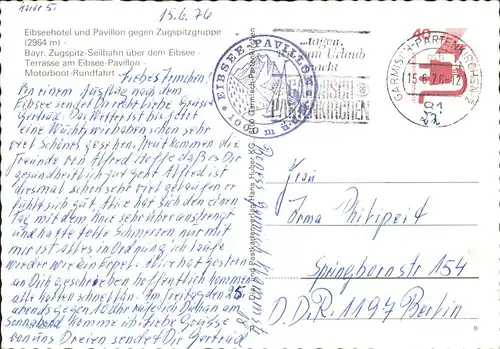 15.6.76
Eibseehotel und Pavillon gegen Zugspitzgruppe
(2964 m) -
Bayr. Zugspitz-Seilbahn über dem Eibsee -
Terrasse am Eibsee-Pavillon -
Motorboot-Rundfahrt
Liebes Irmchen!
Von einem Ausflug nach dem
Eibsee sendet Dir recht liebe Grüsse
Gertrud. Das Wetter ist bis jetzt
eine Wucht, wir haben schon sehr
viel schönes gesehen. Heut kommen die
Freunde von Alfred. Hoffe daß es Dir
gesundheitlich gut geht. Alfred ist
diesmal schon sehr viel gelaufen, er
fühlt sich gut. Alice hat sich den einen
Tag mit dem Knie sehr überanstrengt
und hatte tolle Schmerzen nur mit
mir ist alles in Ordnung ich laufe
wieder wie ein
an Dich geschrieben hoffentlich kommen
alle Karten schnell an. Am Freitag den 25.
abends gegen 10 Uhr rufe ich Dich an am
Sonnabend komme ich. Liebe Grüsse
von uns Dreien sendet Dir Gertrud
EIBSEE-PAVILLON
1000 m ü.
...tagen,
Urlaub
GARMISCH
PARTENKIRCHEN
GARMISCH-PARTENKIRCHEN 2
15.-6.76-12
81
40
Frau
Irma Philipeit
Springbornstr 154
D.D.R. 1197 Berlin